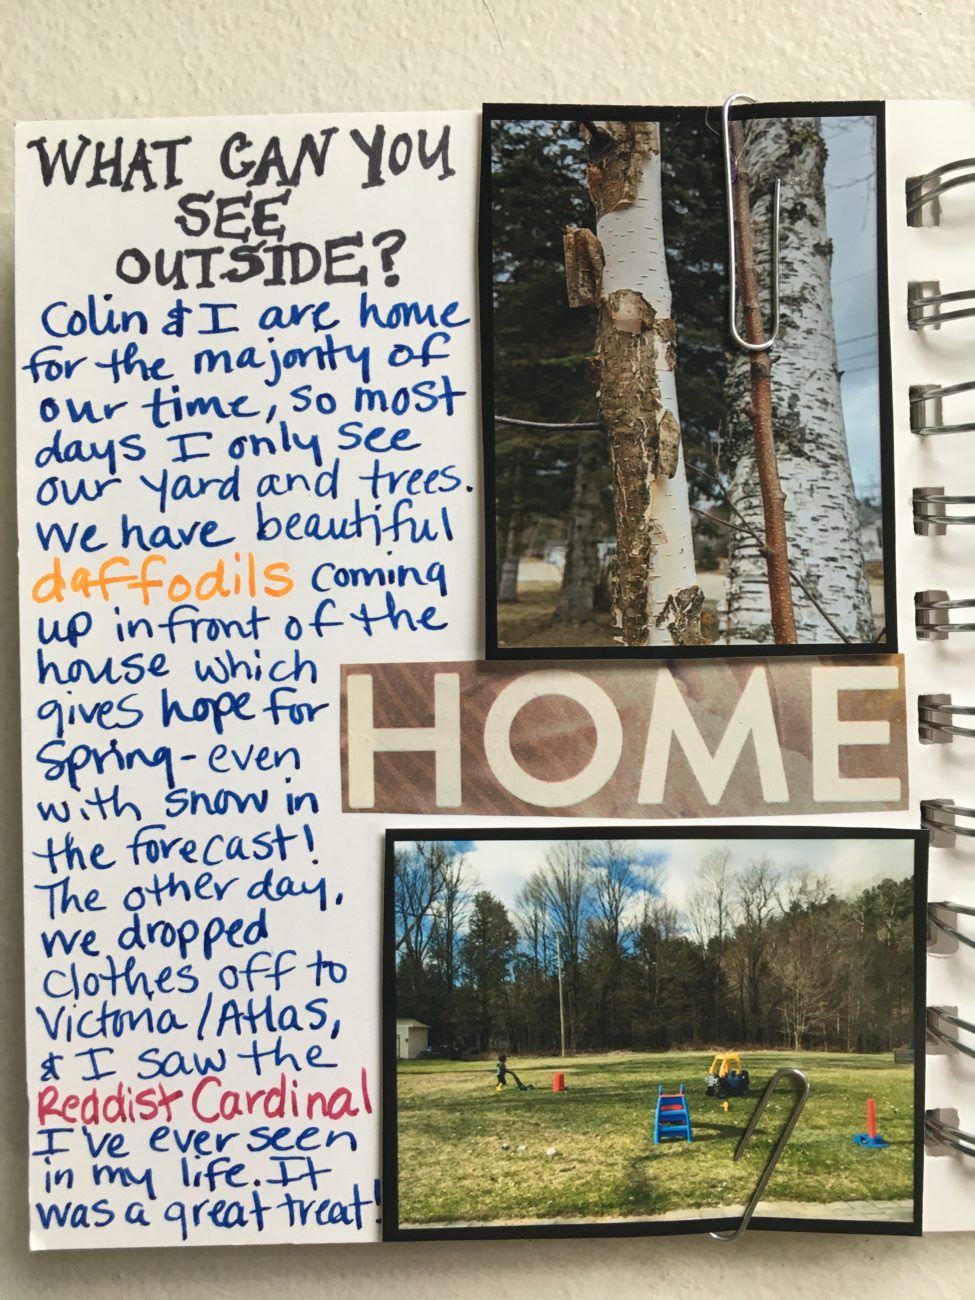 WHAT CAN YOU
SEE
OUTSIDE?
Colin & I are home
for the majority of
our time, so most
days I only see
our yard and trees.
We have beautiful
daffodils coming
up in front of the
house which
gives hope for
Spring-even
with snow in
the forecast!
The other day,
we dropped
clothes off to
Victoria/Atlas,
& I saw the
Reddist Cardinal
I've ever seen
in my life. It
was a great treat!
HOME